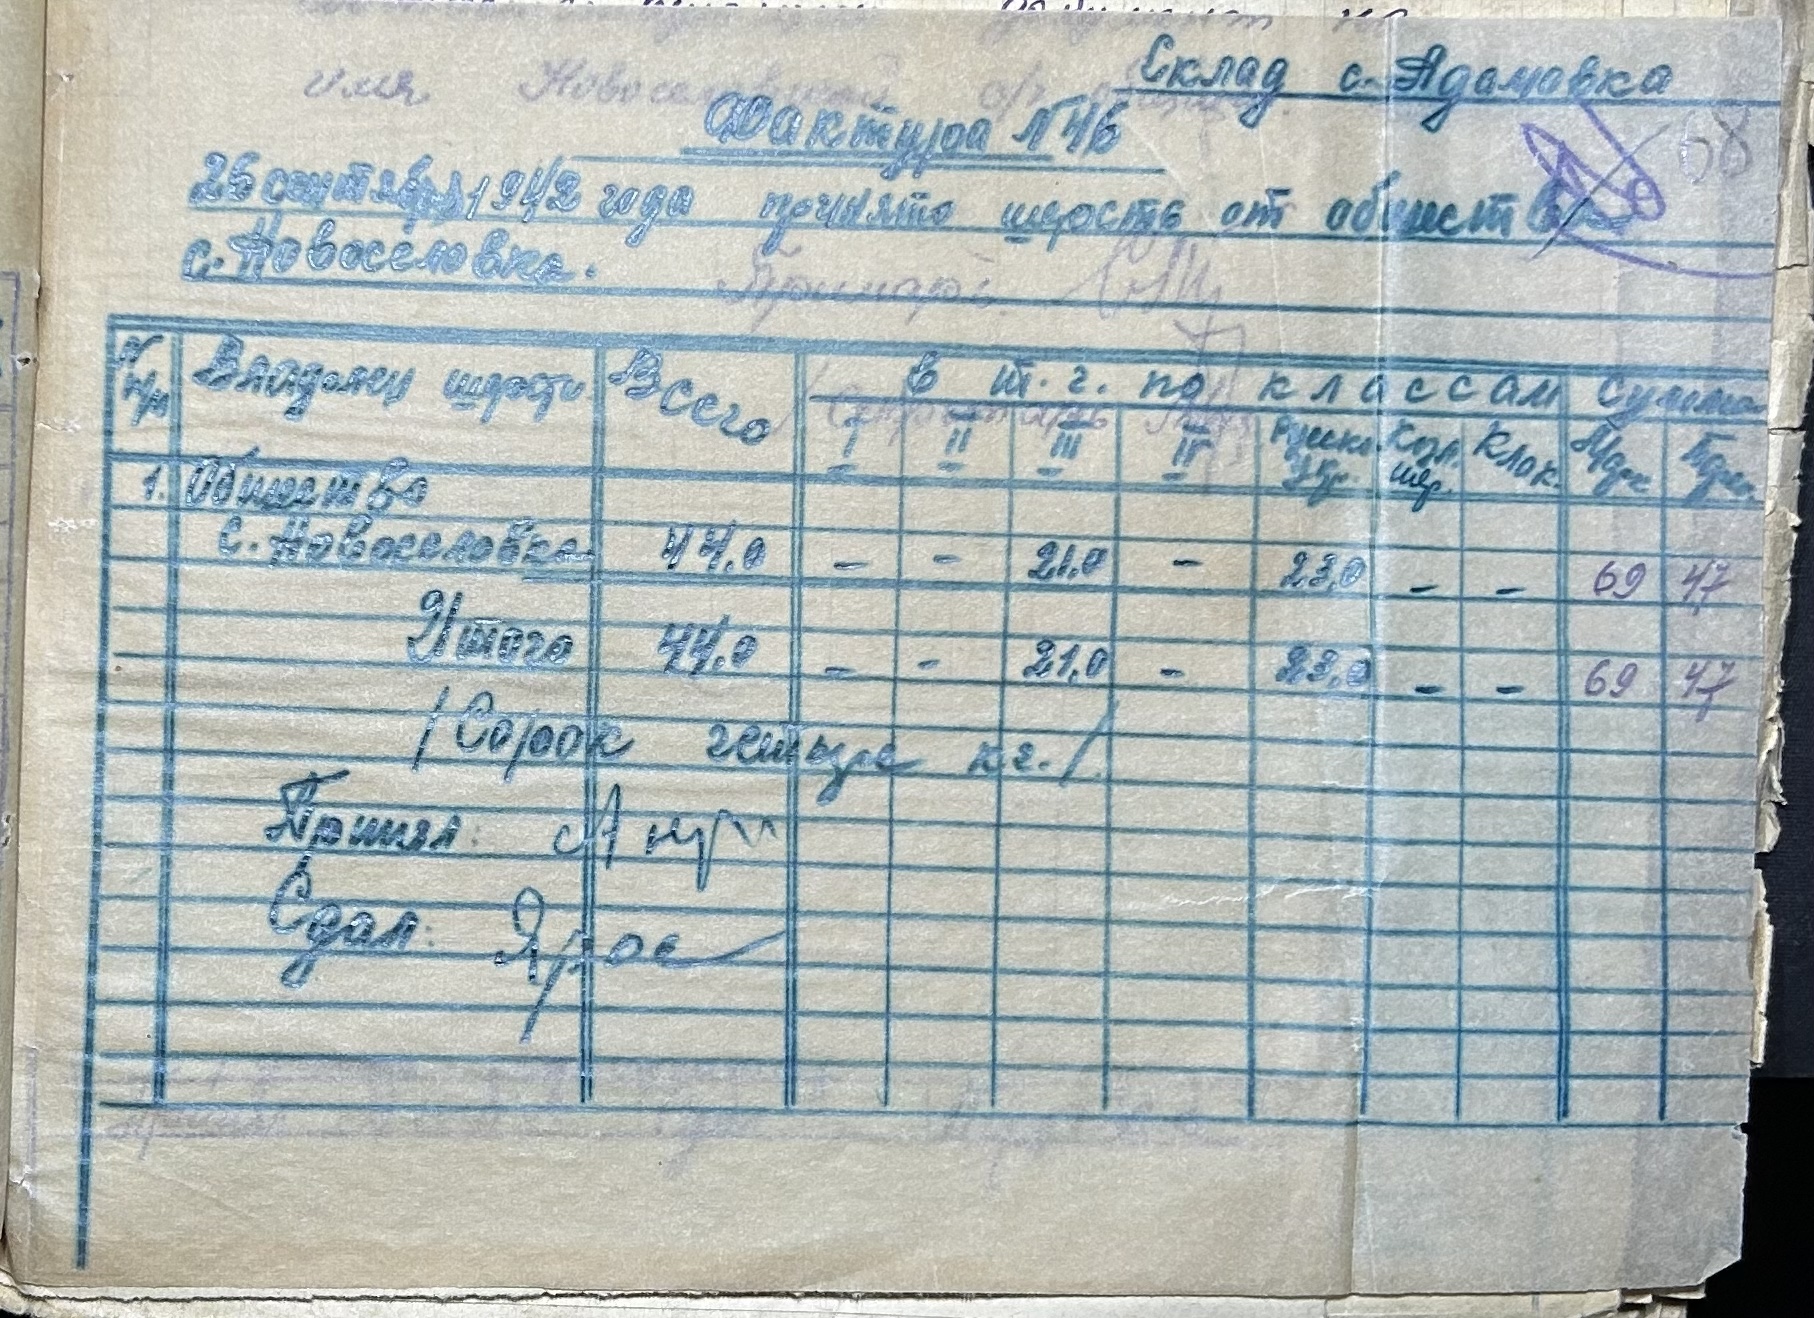 Склад с. Адамовка
Фактура № 46
68
26 сентября 1942 года принято шерсть от общества
с. Новоселовка.
№ п/п Владелец шерсти Всего в т. ч. по классам Сумма
I II III IV Коз. шер. Клок. Марк Пфен.
1. Общество
с. Новоселовка 44,0 – – 21,0 – 23,0 – – 69 47
Итого 44,0 – – 21,0 – 23,0 – – 69 47
/Сорок четыре кг./
Принял:
Сдал: Ярос